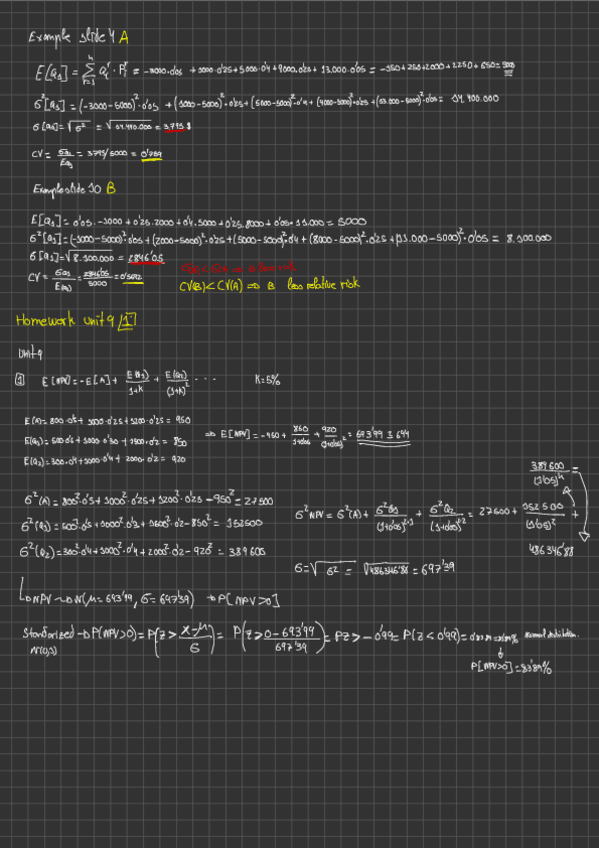 Example slide 4 A
E[Q₁] = Σ aʳ · Pʳ = -3000·0'05 + 1000·0'25 + 5000·0'4 + 9000·0'25 + 13.000·0'05 = -150+250+2000+2250+650 = 5000
σ²[Q₁] = (-3000-5000)²·0'05 + (1000-5000)²·0'25 + (5000-5000)²·0'4 + (9000-5000)²·0'25 + (13.000-5000)²·0'05 = 14.400.000
σ[Q₁] = √σ² = √14.400.000 = 3.795 $
CV = = 3795/5000 = 0'759
Example slide 10 B
E[Q₁] = 0'05·-1000 + 0'25·2000 + 0'4·5000 + 0'25·8000 + 0'05·11.000 = 5000
σ²[Q₁] = (-1000-5000)²·0'05 + (2000-5000)²·0'25 + (5000-5000)²·0'4 + (8000-5000)²·0'25 + (11.000-5000)²·0'05 = 8.100.000
σ[Q₁] = √8.100.000 = 2846'05
CV = σQ₁/E(Q₁) = 2846'05/5000 = 0'5692
CV(B) < CV(A) ⇒ B less relative risk
Homework unit 9 [1]
Unit 9
① E[NPV] = -E[A] + E(Q₁)/1+k + E(Q₂)/(1+k)² ... K=5%
E(A) = 800·0'5 + 1000·0'25 + 1200·0'25 = 950
E(Q₁) = 500·0'5 + 1000·0'30 + 1500·0'2 = 850
E(Q₂) = 300·0'4 + 1000·0'4 + 2000·0'2 = 920
⇒ E[NPV] = -950 + 850/1+0'05 + 920/(1+0'05)² = 693'99 ≃ 694
σ²(A) = 800²·0'5 + 1000²·0'25 + 1200²·0'25 - 950² = 27500
σ²(Q₂) = 300²·0'4 + 1000²·0'4 + 2000²·0'2 - 920² = 389600
σ²NPV = σ²(A) + σ²Q₁/(1+0'05)²·¹ + σ²Q₂/(1+0'05)²·² = 27500 + 152500/(1'05)² +
389600/(1'05)⁴ =
486346'88
σ = √σ² = √486346'88 = 697'39
↳ NPV → N(μ = 693'99, σ = 697'39) → P[NPV>0]
Standarized → P(NPV>0) = P(z > X-μ/σ) = P(z > 0-693'99/697'39) = Pz > -0'99 = P(z < 0'99) = normal distribution.
N(0,1)
P[NPV>0] = 83'89%